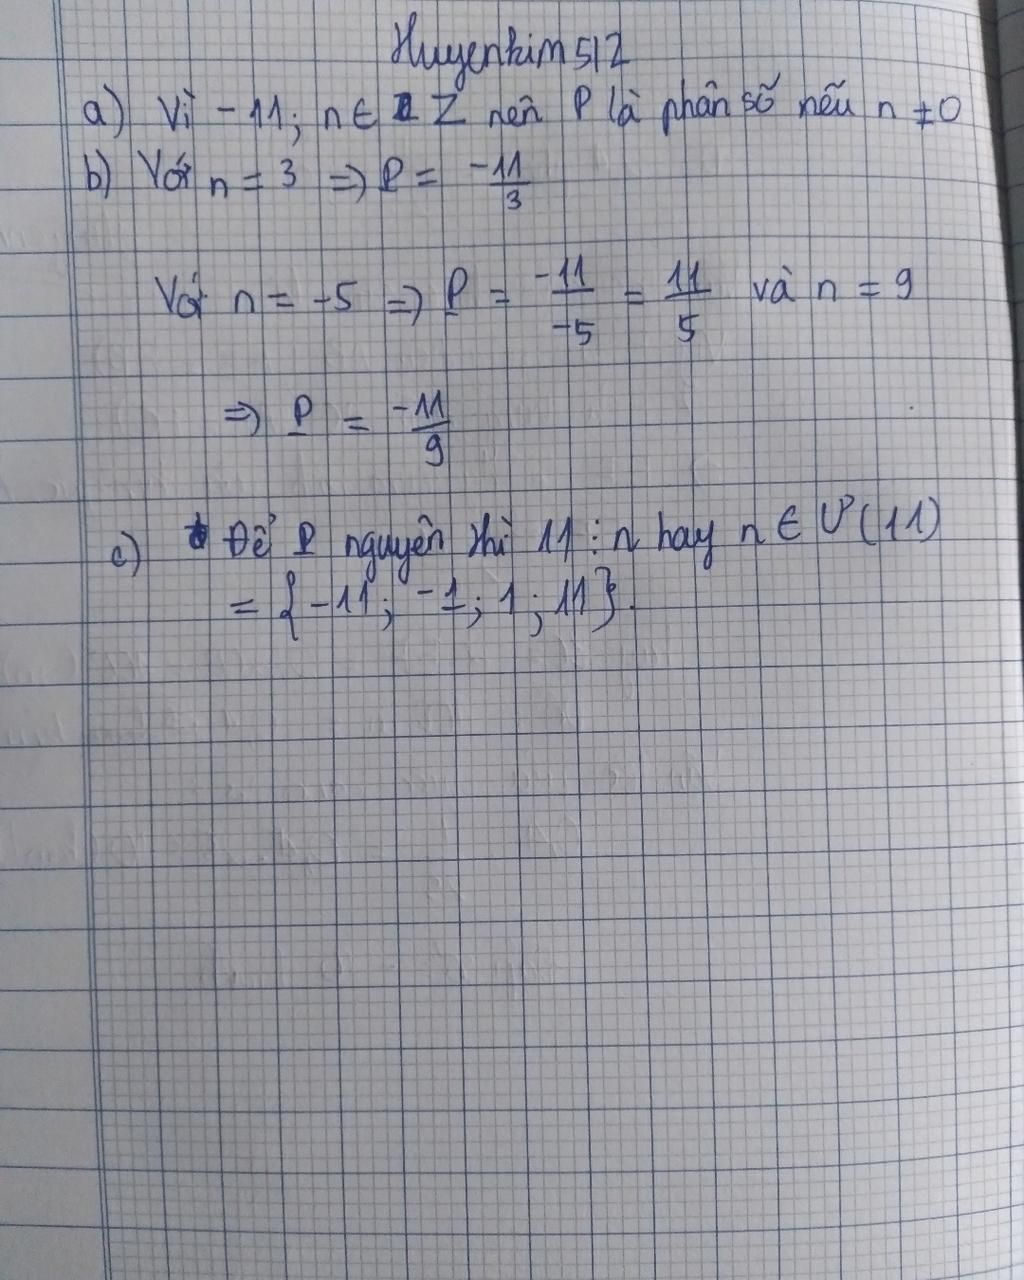 Huyenkim512
a) Vì -11; n ∈ Z nên P là phân số nếu n ≠ 0
b) Với n = 3 => P = -11/3
Với n = -5 => P = -11/-5 = 11/5 và n = 9
=> P = -11/9
c) Để P nguyên thì 11 ⋮ n hay n ∈ Ư(11)
= {-11; -1; 1; 11}.